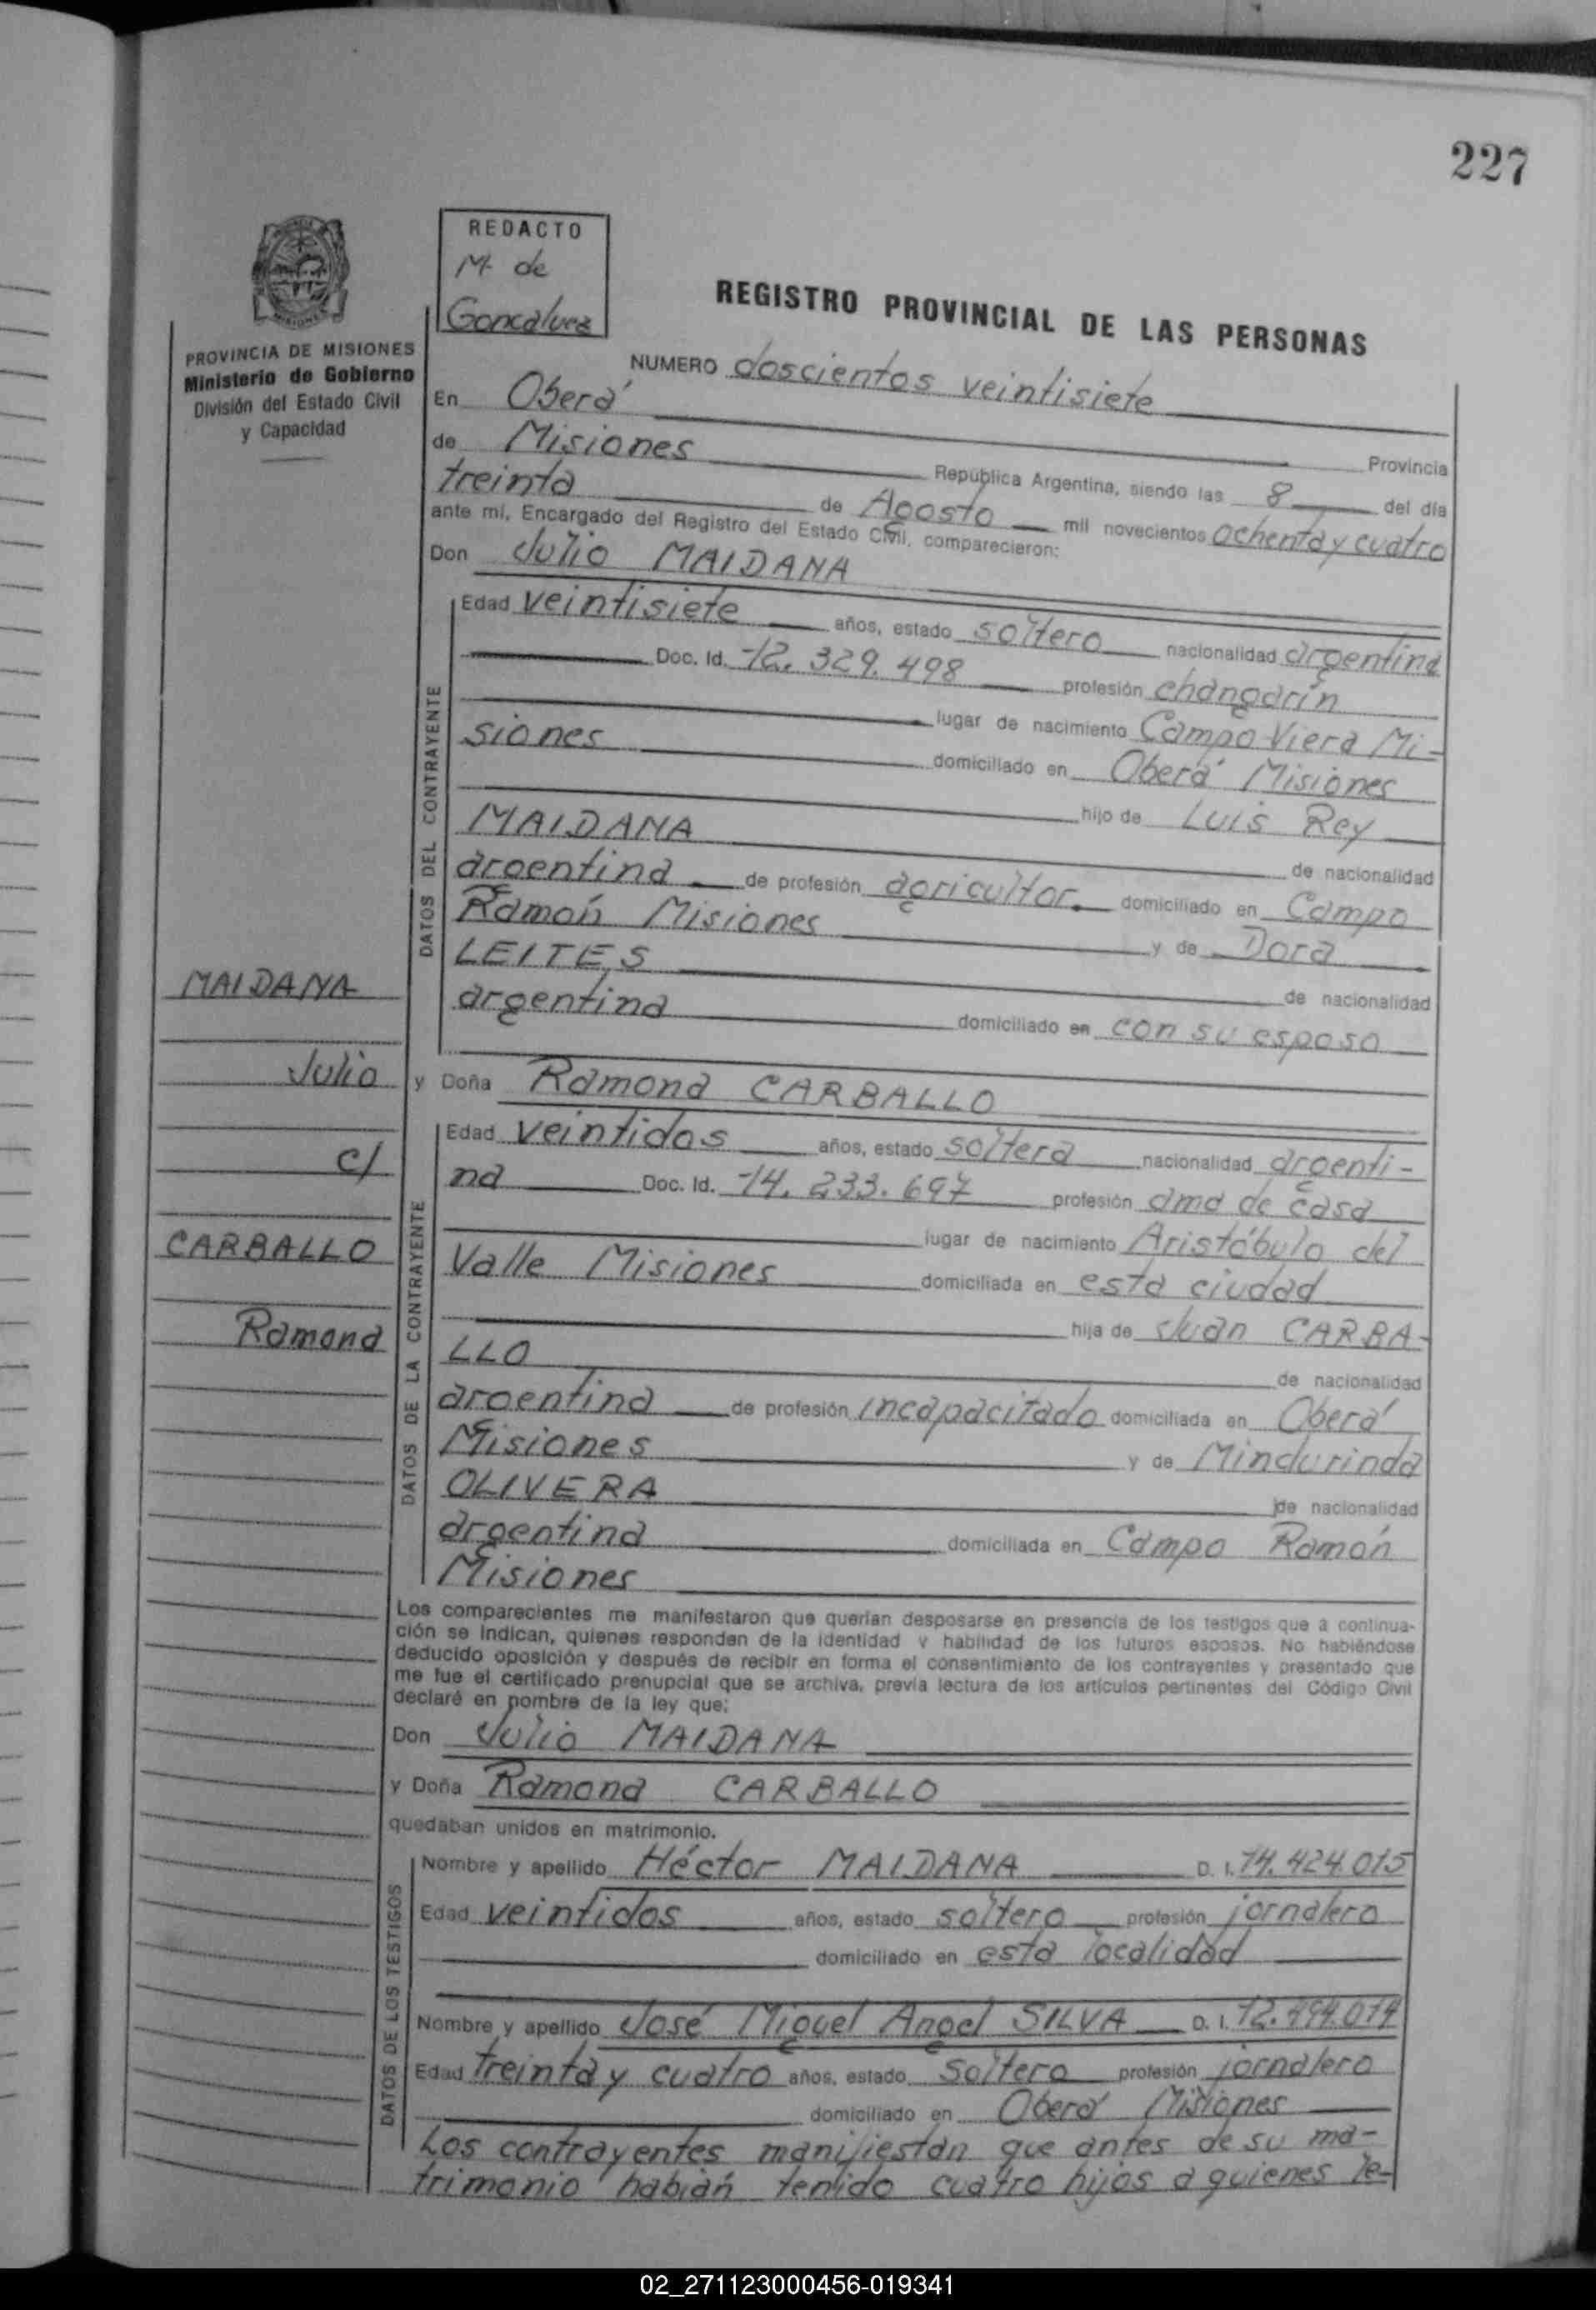 227
REDACTO
M. de
Goncalvez
REGISTRO PROVINCIAL DE LAS PERSONAS
PROVINCIA DE MISIONES
Ministerio de Gobierno
División del Estado Civil
y Capacidad
NUMERO doscientos veintisiete
En Oberá Provincia
de Misiones República Argentina, siendo las 8 del día
treinta de Agosto mil novecientos ochenta y cuatro
ante mí, Encargado del Registro del Estado Civil, comparecieron:
Don Julio MAIDANA
DATOS DEL CONTRAYENTE
Edad veintisiete años, estado soltero nacionalidad argentina
Doc. Id. 12.329.498 profesión changarín
lugar de nacimiento Campo Viera Mi-
siones domiciliado en Oberá Misiones
hijo de Luis Rey
MAIDANA de nacionalidad
argentina de profesión agricultor. domiciliado en Campo
Ramón Misiones y de Dora
LEITES de nacionalidad
argentina domiciliado en con su esposo
MAIDANA
Julio
c/
CARBALLO
Ramona
y Doña Ramona CARBALLO
DATOS DE LA CONTRAYENTE
Edad veintidos años, estado soltera nacionalidad argenti-
na Doc. Id. 14.233.697 profesión ama de casa
lugar de nacimiento Aristóbulo del
Valle Misiones domiciliada en esta ciudad
hija de Juan CARBA-
LLO de nacionalidad
argentina de profesión incapacitado domiciliada en Oberá
Misiones y de Mindurinda
OLIVERA de nacionalidad
argentina domiciliada en Campo Ramón
Misiones
Los comparecientes me manifestaron que querían desposarse en presencia de los testigos que a continua-
ción se indican, quienes responden de la identidad y habilidad de los futuros esposos. No habiéndose
deducido oposición y después de recibir en forma el consentimiento de los contrayentes y presentado que
me fue el certificado prenupcial que se archiva, previa lectura de los artículos pertinentes del Código Civil
declaré en nombre de la ley que:
Don Julio MAIDANA
y Doña Ramona CARBALLO
quedaban unidos en matrimonio.
DATOS DE LOS TESTIGOS
Nombre y apellido Héctor MAIDANA D. I. 14.424.015
Edad veintidos años, estado soltero profesión jornalero
domiciliado en esta localidad
Nombre y apellido José Miguel Angel SILVA D. I.
Edad treinta y cuatro años, estado soltero profesión jornalero
domiciliado en Oberá Misiones
Los contrayentes manifiestan que antes de su ma-
trimonio habián tenido cuatro hijos a quienes le-
02_271123000456-019341